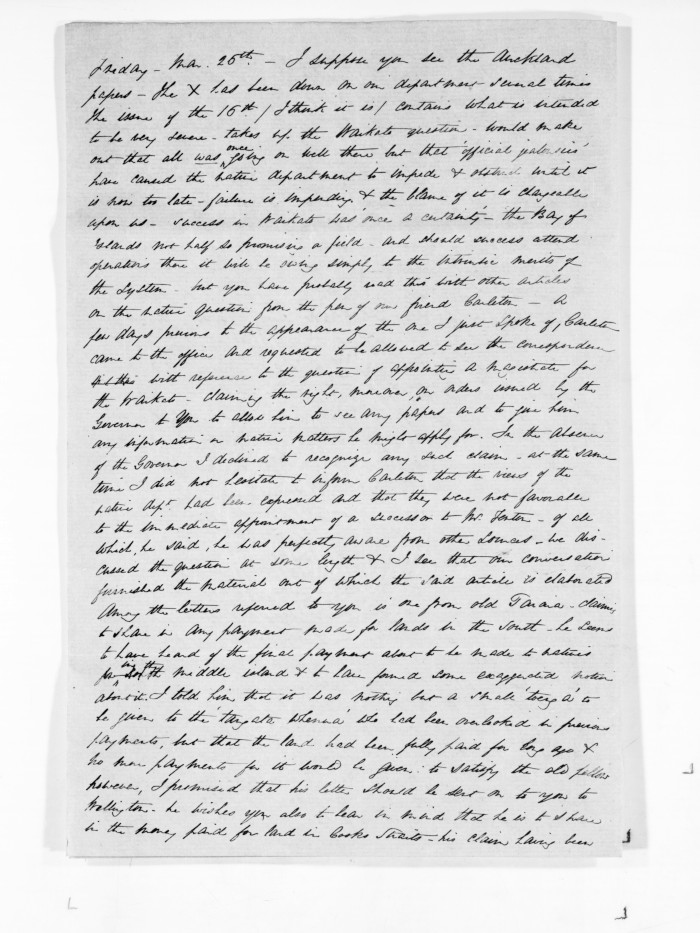 Friday - Mar. 25th - I suppose you see the Auckland
papers - The X has been down on our department several times
The issue of the 15th / I think it is / contains what is intended
to be very severe - takes up the Waikato question - would make
out that all was once going on well there but that 'official jealousies'
have caused the native department to impede & obstruct until it
is now too late - failure is impending & the blame of it is chargeable
upon us - success in Waikato was once a certainty - the Bay of
Islands not half so promising a field - and should success attend
operations there it will be owing simply to the intrinsic merits of
the System - but you have probably read this with other articles
on the native question from the pen of our friend Carleton - A
few days previous to the appearance of the one I just spoke of, Carleton
came to the office and requested to be allowed to see the correspondence
with reference to the question of appointing a magistrate for
the Waikato - claiming the right, moreover, on orders issued by the
Governor to you to allow him to see any papers and to give him
any information on native matters he might apply for. In the absence
of the Governor I declined to recognize any such claim - at the same
time I did not hesitate to inform Carleton that the views of the
native dept. had been expressed and that they were not favorable
to the immediate appointment of a successor to Mr. Fenton - of all
which, he said, he was perfectly aware from other sources - we dis-
cussed the question at some length & I see that our conversation
furnished the material out of which the said article is elaborated
Among the letters referred to you is one from old Taraia - claiming
to share in any payment made for lands in the south - he seems
to have heard of the final payment about to be made to natives
in the middle island & to have formed some exaggerated notion
about it. I told him that it was nothing but a small 'to be
given to the 'tangata whenua' who had been overlooked in previous
payments, but that the land had been fully paid for long ago &
no more payments for it would be given: to satisfy the old fellow
however, I promised that his letter should be sent on to you to
Wellington - he wishes you also to bear in mind that he is to share
in the money paid for land in Cooks Straits - his claim having been